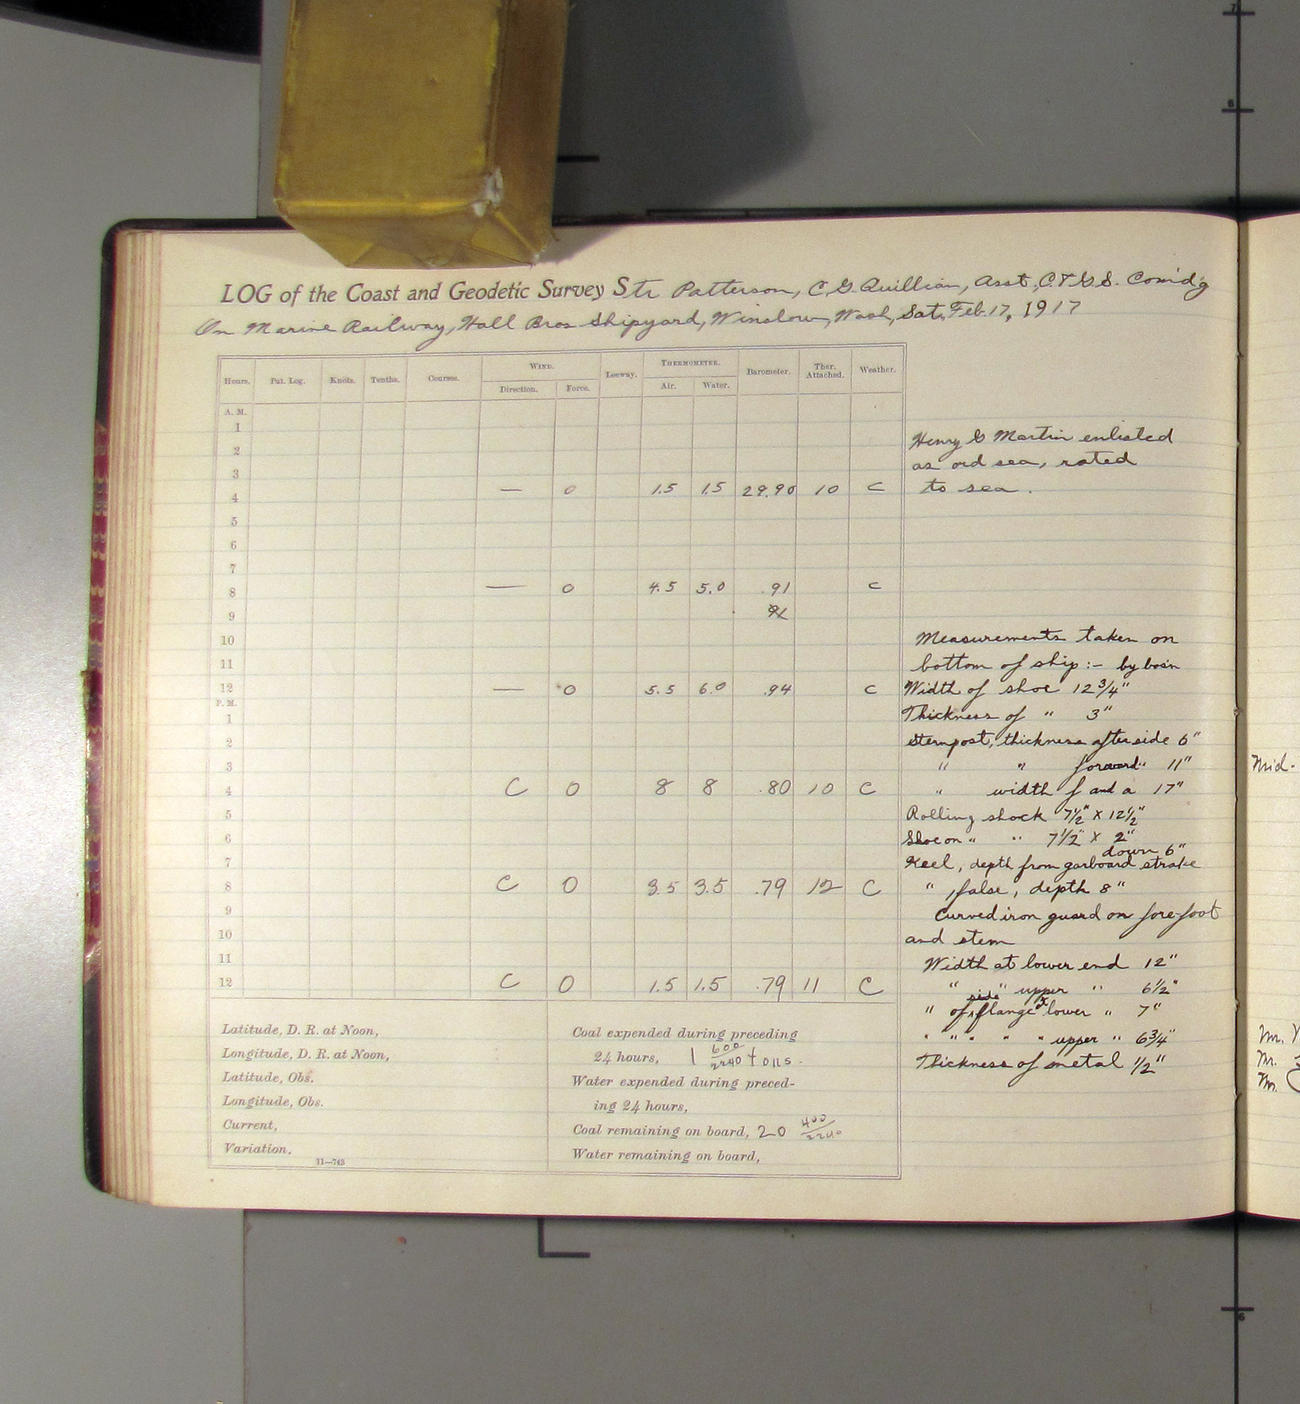 LOG of the Coast and Geodetic Survey Str Patterson, C.G. Quillian, Asst, C.&G.S. Com'd'g
On Marine Railway, Hall Bros Shipyard, Winslow, Wash, Sat. Feb. 17, 1917
Hours. Pat. Log. Knots. Tenths. Courses. WIND. Leeway. THERMOMETER. Barometer. Ther. Attached. Weather.
Direction. Force. Air. Water.
A. M.
1
Henry G Martin enlisted
2
as ord sea, rated
3
4 — 0 1.5 1.5 29.90 10 c
to sea.
5
6
7
8 — 0 4.5 5.0 .91 c
9
10
Measurements taken on
11
bottom of ship:- by bos'n
12 — 0 5.5 6.0 .94 c
Width of shoe 12 3/4"
P. M.
1
Thickness of " 3"
2
Sternpost, thickness after side 6"
3
" " forward " 11"
4 C 0 8 8 .80 10 C
" width f and a 17"
5
Rolling shock 7 1/2" X 12 1/2"
6
Shoe on " " 7 1/2" X 2"
down 6"
7
Keel, depth from garboard strake
8 C 0 3.5 3.5 .79 12 C
" , false, depth 8"
9
Curved iron guard on fore-foot
10
and stem
11
Width at lower end 12"
12 C 0 1.5 1.5 .79 11 C
" " upper " 6 1/2"
side
" of flange lower " 7"
" " " " " upper " 6 3/4"
Thickness of metal 1/2"
Latitude, D. R. at Noon,
Longitude, D. R. at Noon,
Latitude, Obs.
Longitude, Obs.
Current,
Variation,
11—743
Coal expended during preceding
24 hours, 1 600/2240 tons.
Water expended during preced-
ing 24 hours,
Coal remaining on board, 20 400/2240
Water remaining on board,
Mid-
M.
M.
7
8
6